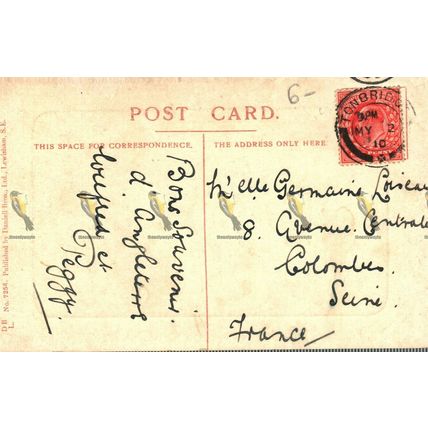 6-
POST CARD.
THIS SPACE FOR CORRESPONDENCE.
THE ADDRESS ONLY HERE
TONBRIDGE
9PM
MY 2
10
Bons Souvenirs
d'Angleterre
et
Peggy.
Mlle Germaine Loiseau
8. Avenue Centrale
Colombes
Seine.
France
D B No. 7258. Published by Daniell Bros., Ltd., Lewisham, S.E.
L.